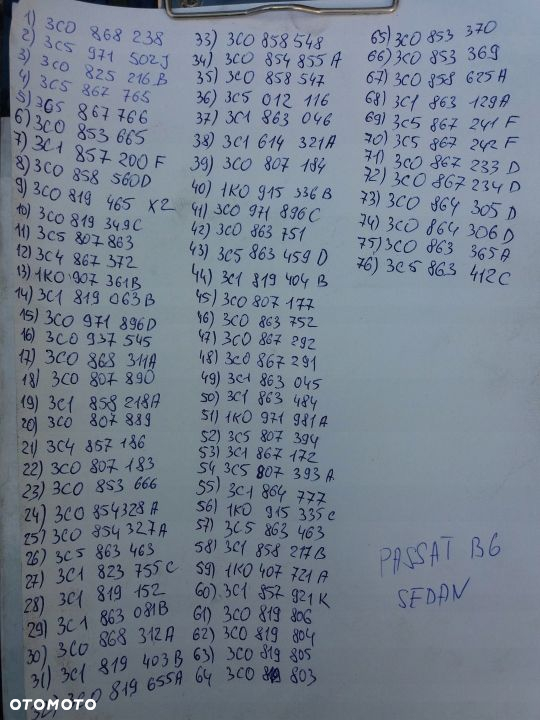 1) 3C0 868 238
2) 3C5 971 502J
3) 3C0 825 216 B
4) 3C5 867 765
5) 3C5 867 766
6) 3C0 853 665
7) 3C1 857 200 F
8) 3C0 858 560D
9) 3C0 819 465 X2
10) 3C0 819 349C
11) 3C5 807 863
12) 3C4 867 372
13) 1K0 907 361B
14) 3C1 819 063 B
15) 3C0 971 896D
16) 3C0 937 545
17) 3C0 868 311A
18) 3C0 807 890
19) 3C1 858 218A
20) 3C0 807 889
21) 3C4 857 186
22) 3C0 807 183
23) 3C0 853 666
24) 3C0 854328 A
25) 3C0 854 327A
26) 3C5 863 463
27) 3C1 823 755 C
28) 3C1 819 152
29) 3C1 863 081B
30) 3C0 868 312A
31) 3C1 819 403 B
32) 3C0 819 655A
33) 3C0 858 548
34) 3C0 854 855 A
35) 3C0 858 547
36) 3C5 012 116
37) 3C1 863 046
38) 3C1 614 321 A
39) 3C0 807 184
40) 1K0 915 336 B
41) 3C0 971 896C
42) 3C0 863 751
43) 3C5 863 459 D
44) 3C1 819 404 B
45) 3C0 807 177
46) 3C0 863 752
47) 3C0 867 292
48) 3C0 867 291
49) 3C1 863 045
50) 3C1 863 484
51) 1K0 971 981 A
52) 3C5 807 394
53) 3C1 867 172
54 3C5 807 393 A
55) 3C1 864 777
56) 1K0 915 335 C
57) 3C5 863 463
58) 3C1 858 217B
59) 1K0 407 721 A
60) 3C1 857 921 K
61) 3C0 819 806
62) 3C0 819 804
63) 3C0 819 805
64 3C0 819 803
65) 3C0 853 370
66) 3C0 853 369
67) 3C0 858 625 A
68) 3C1 863 129 A
69) 3C5 867 241 F
70) 3C5 867 242 F
71) 3C0 867 233 D
72) 3C0 867 234 D
73) 3C0 864 305 D
74) 3C0 864 306 D
75) 3C0 863 365 A
76) 3C5 863 412 C
PASSAT B6
SEDAN
OTOMOTO